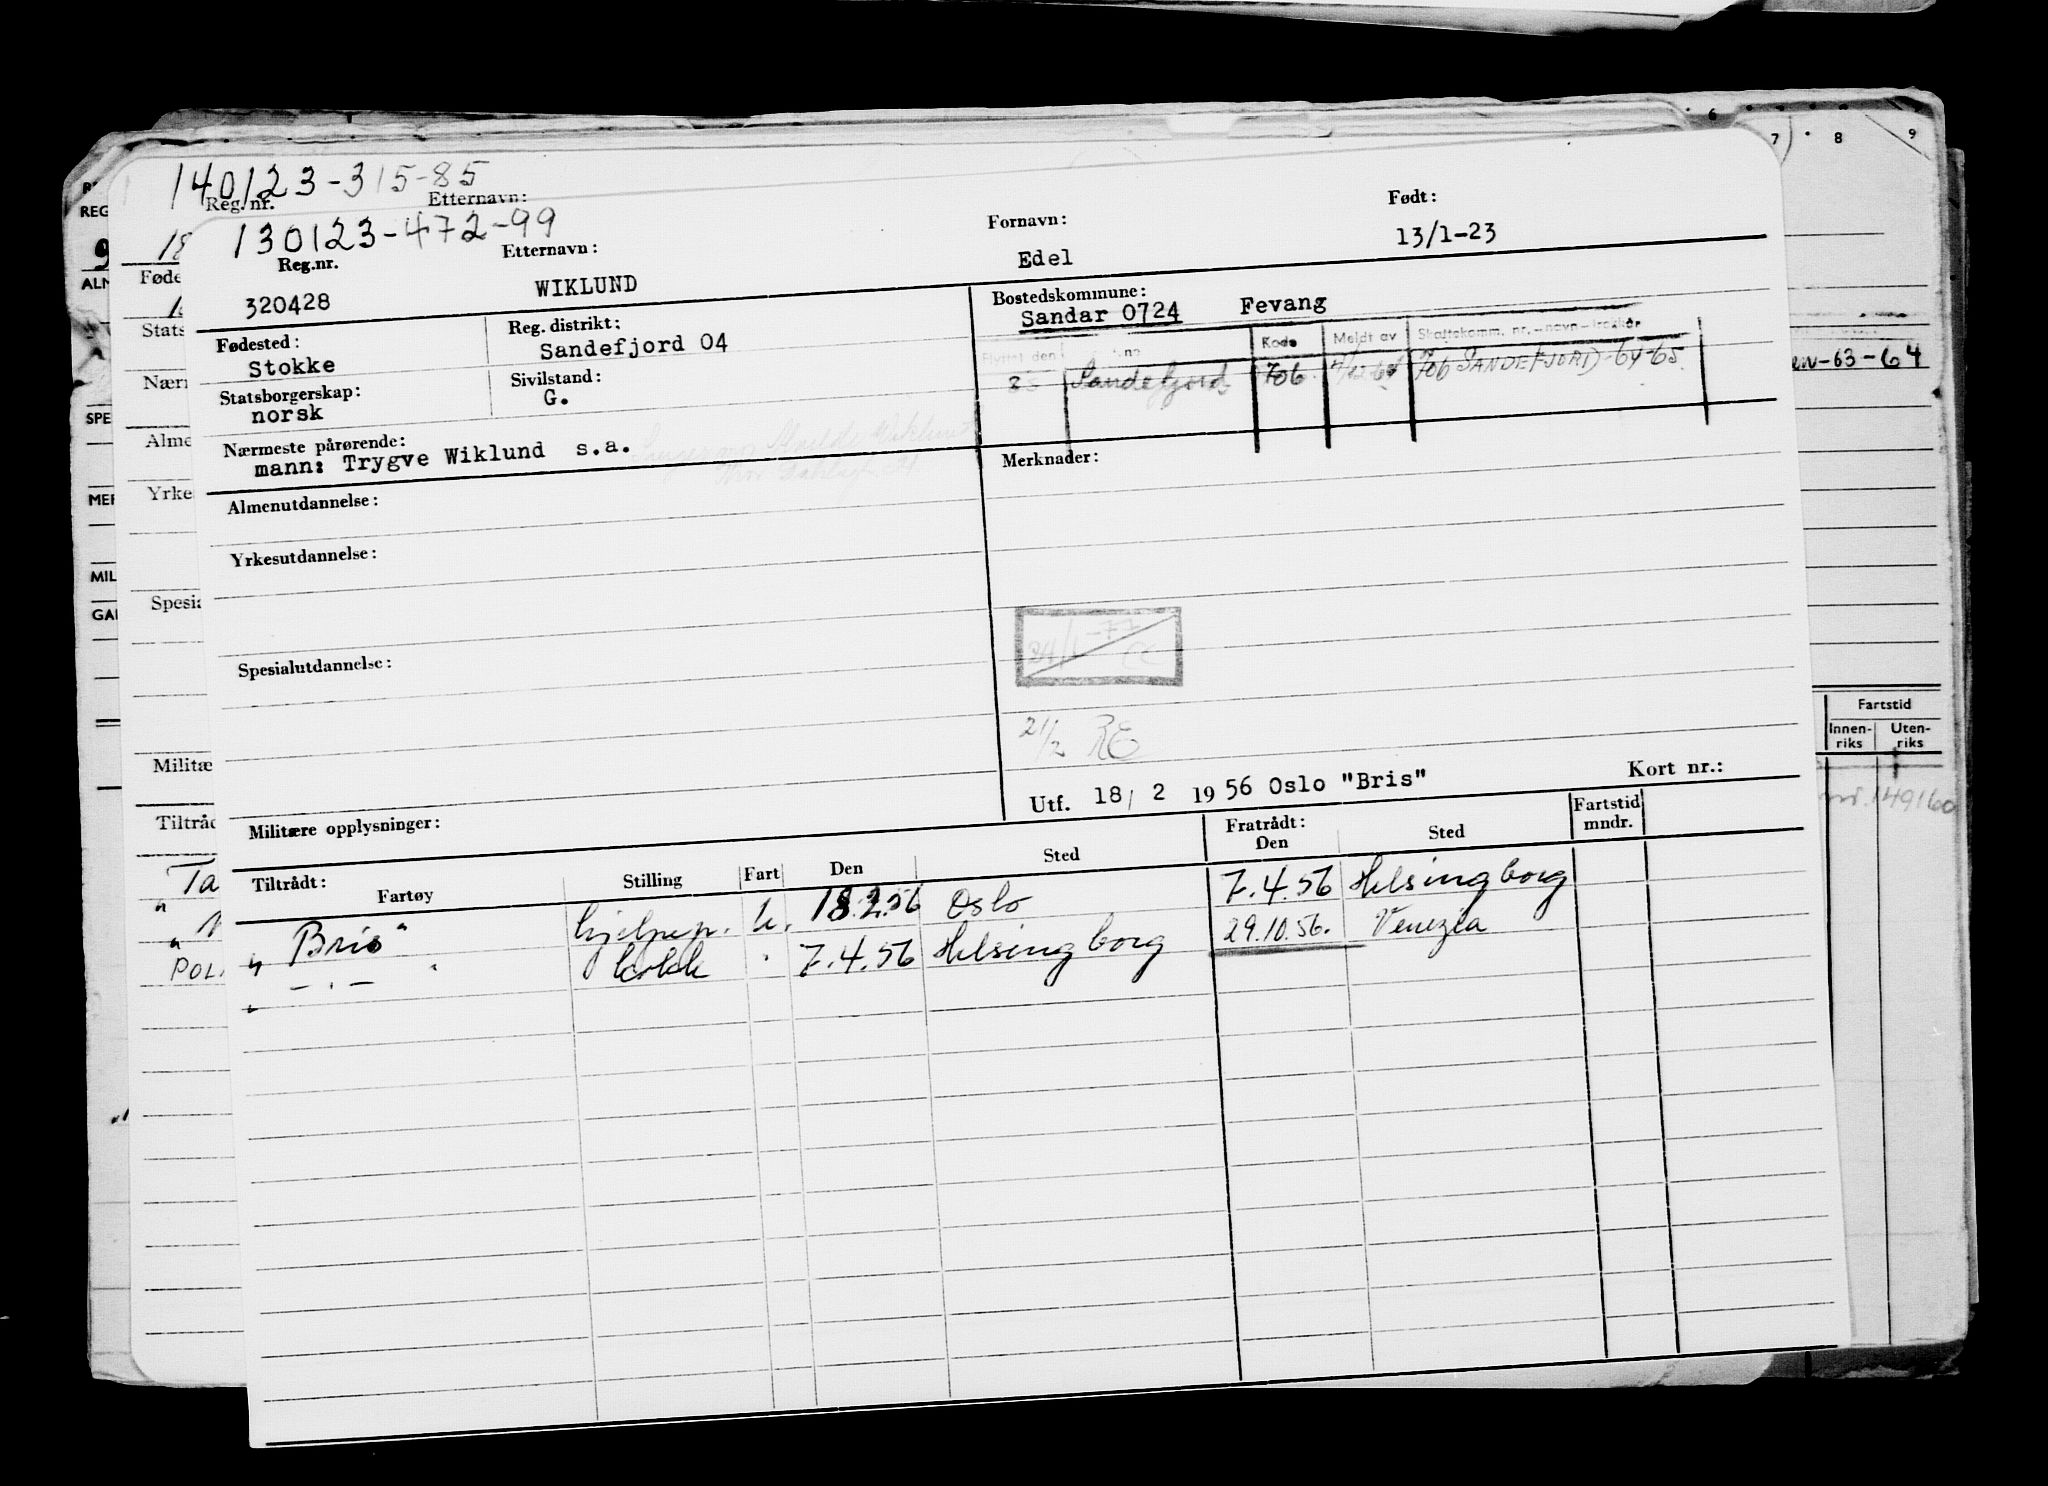 6 7 8 9
140123-315-85
Reg. nr. Etternavn:
130123-472-99
Reg.nr. Etternavn: Fornavn: Født:
320428 WIKLUND Edel 13/1-23
Fødested: Reg. distrikt: Bostedskommune:
Stokke Sandefjord 04 Sandar 0724 Fevang
Statsborgerskap: Sivilstand:
norsk G.
Flyttet den Kode Meldt av Skattekomm. nr. - navn - trekkår
Sandefjord 706 706 SANDEFJORD-64-65
-63-64
Nærmeste pårørende:
mann: Trygve Wiklund s.a.
Merknader:
Almenutdannelse:
Yrkesutdannelse:
Spesialutdannelse:
24/1-77
21/2 RE
Utf. 18/ 2 1956 Oslo "Bris" Kort nr.:
Militære opplysninger:
Fartstid
Innen-riks Uten-riks
149160
Tiltrådt: Fratrådt: Fartstid mndr.
Fartøy Stilling Fart Den Sted Den Sted
"Bris" hjelpep. u. 18.2.56 Oslo 7.4.56 Helsingborg
" - " - " kokk " 7.4.56 Helsingborg 29.10.56. Venezia
REG
ALM
SPE
MER
MIL
GAR
Føde
Stats
Nærm
Alme
Yrkes
Spesia
Militæ
Tiltråd
Ta
POL